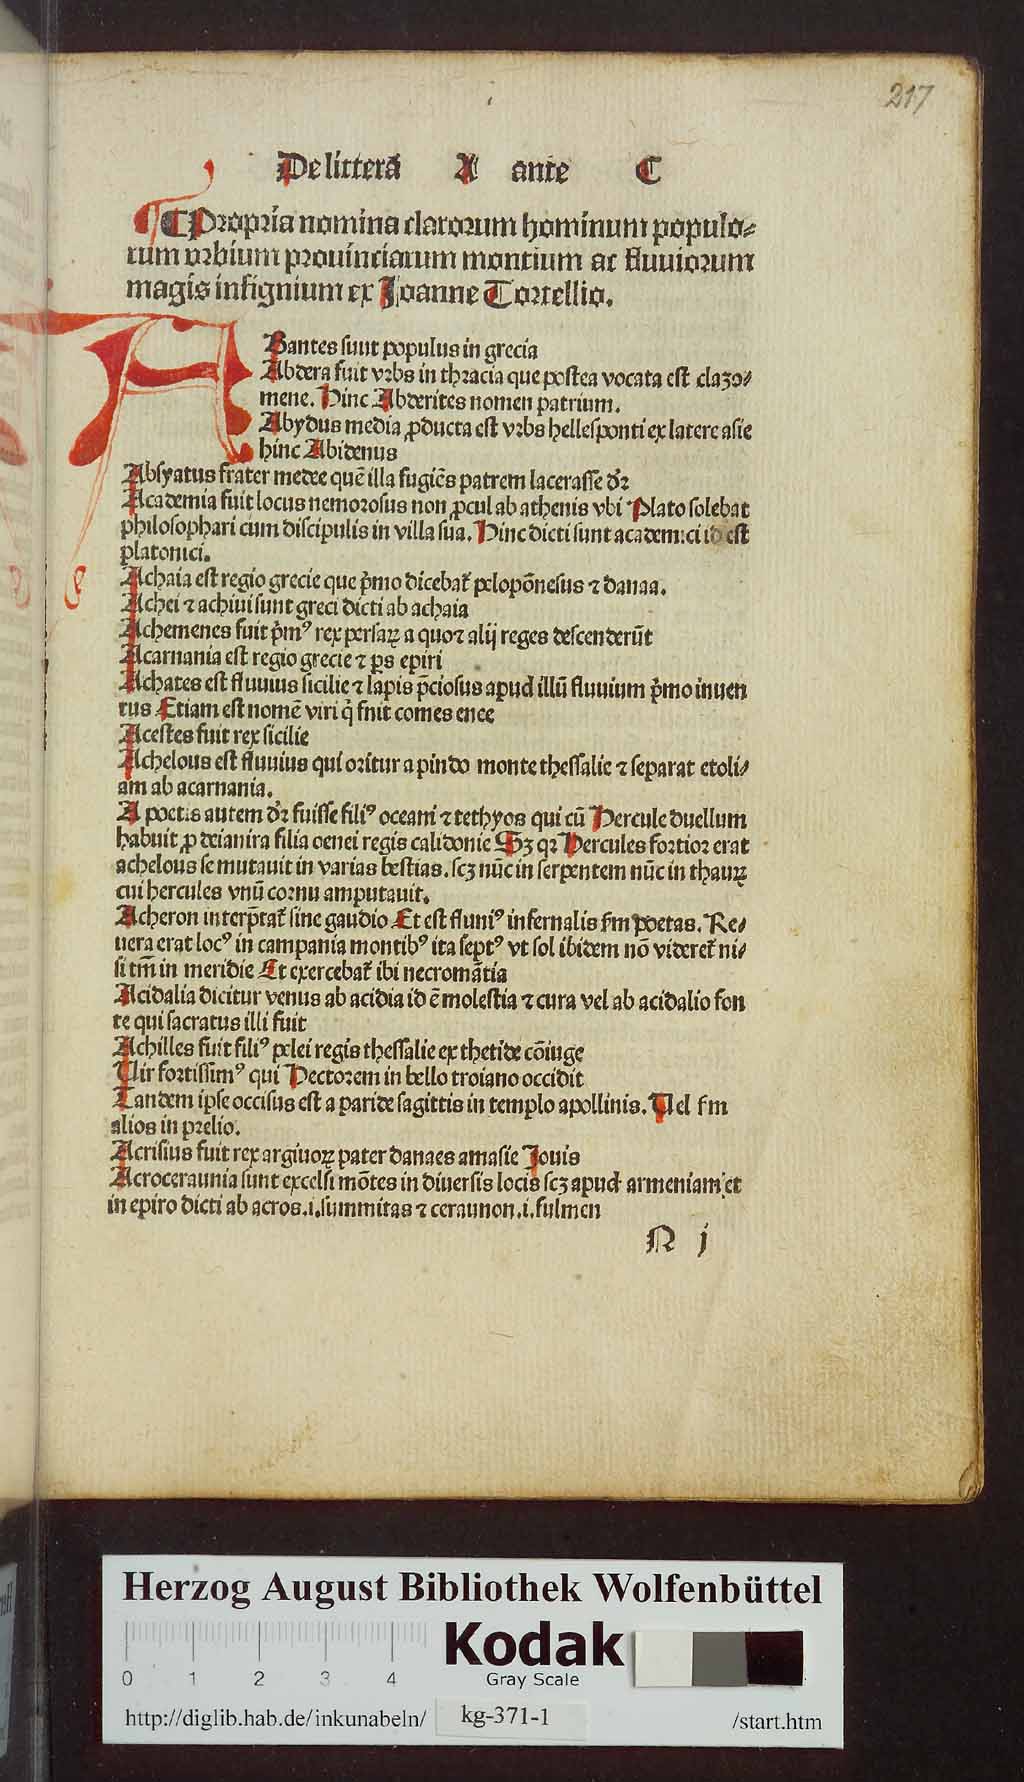 217
De litterā A ante C
¶ Propria nomina clarorum hominum populo⸗
rum vrbium prouinciarum montium ac fluuiorum
magis insignium ex Joanne Tortellio.
ABantes sunt populus in grecia
Abdera fuit vrbs in thracia que postea vocata est clazo⸗
mene. Hinc Abderites nomen patrium.
Abydus media ꝓducta est vrbs hellesponti ex latere asie
hinc Abidenus
Absyatus frater medee quē illa fugiēs patrem lacerasse dr̄
Academia fuit locus nemorosus non ꝓcul ab athenis vbi Plato solebat
philosophari cum discipulis in villa sua. Hinc dicti sunt academici id est
platonici.
Achaia est regio grecie que p̄mo dicebat᷑ pelopōnesus ⁊ danaa.
Achei ⁊ achiui sunt greci dicti ab achaia
Achemenes fuit p̄mꝰ rex persaꝝ a quo⁊ alij reges descenderūt
Acarnania est regio grecie ⁊ ps epiri
Achates est fluuius sicilie ⁊ lapis p̄ciosus apud illū fluuium p̄mo inuen
tus Etiam est nomē viri q̇ fnit comes enee
Acestes fuit rex sicilie
Achelous est fluuius qui oritur a pindo monte thessalie ⁊ separat etoli⸗
am ab acarnania.
A poetis autem dr̄ fuisse filiꝰ oceani ⁊ tethyos qui cū Hercule duellum
habuit ꝓ deianira filia oenei regis calidonie Sꝫ qꝛ Hercules fortior erat
achelous se mutauit in varias bestias. scꝫ nūc in serpentem nūc in thauꝝ
cui hercules vnū cornu amputauit.
Acheron interp̄tat᷑ sine gaudio Et est fluniꝰ infernalis fm poetas. Re⸗
uera erat locꝰ in campania montibꝰ ita septꝰ vt sol ibidem nō videret᷑ ni⸗
si tm̄ in meridie Et exercebat᷑ ibi necromātia
Acidalia dicitur venus ab acidia id ē molestia ⁊ cura vel ab acidalio fon
te qui sacratus illi fuit
Achilles fuit filiꝰ pelei regis thessalie ex thetide cōiuge
Uir fortissimꝰ qui Hectorem in bello troiano occidit
Tandem ipse occisus est a paride sagittis in templo apollinis. Uel fm
alios in prelio.
Acrisius fuit rex argiuoꝝ pater danaes amasie Jouis
Acroceraunia sunt excelsi mōtes in diuersis locis scꝫ apud armeniam et
in epiro dicti ab acros .i. summitas ⁊ ceraunon .i. fulmen
N j
Herzog August Bibliothek Wolfenbüttel
0 1 2 3 4
Kodak
Gray Scale
http://diglib.hab.de/inkunabeln/ kg-371-1 /start.htm